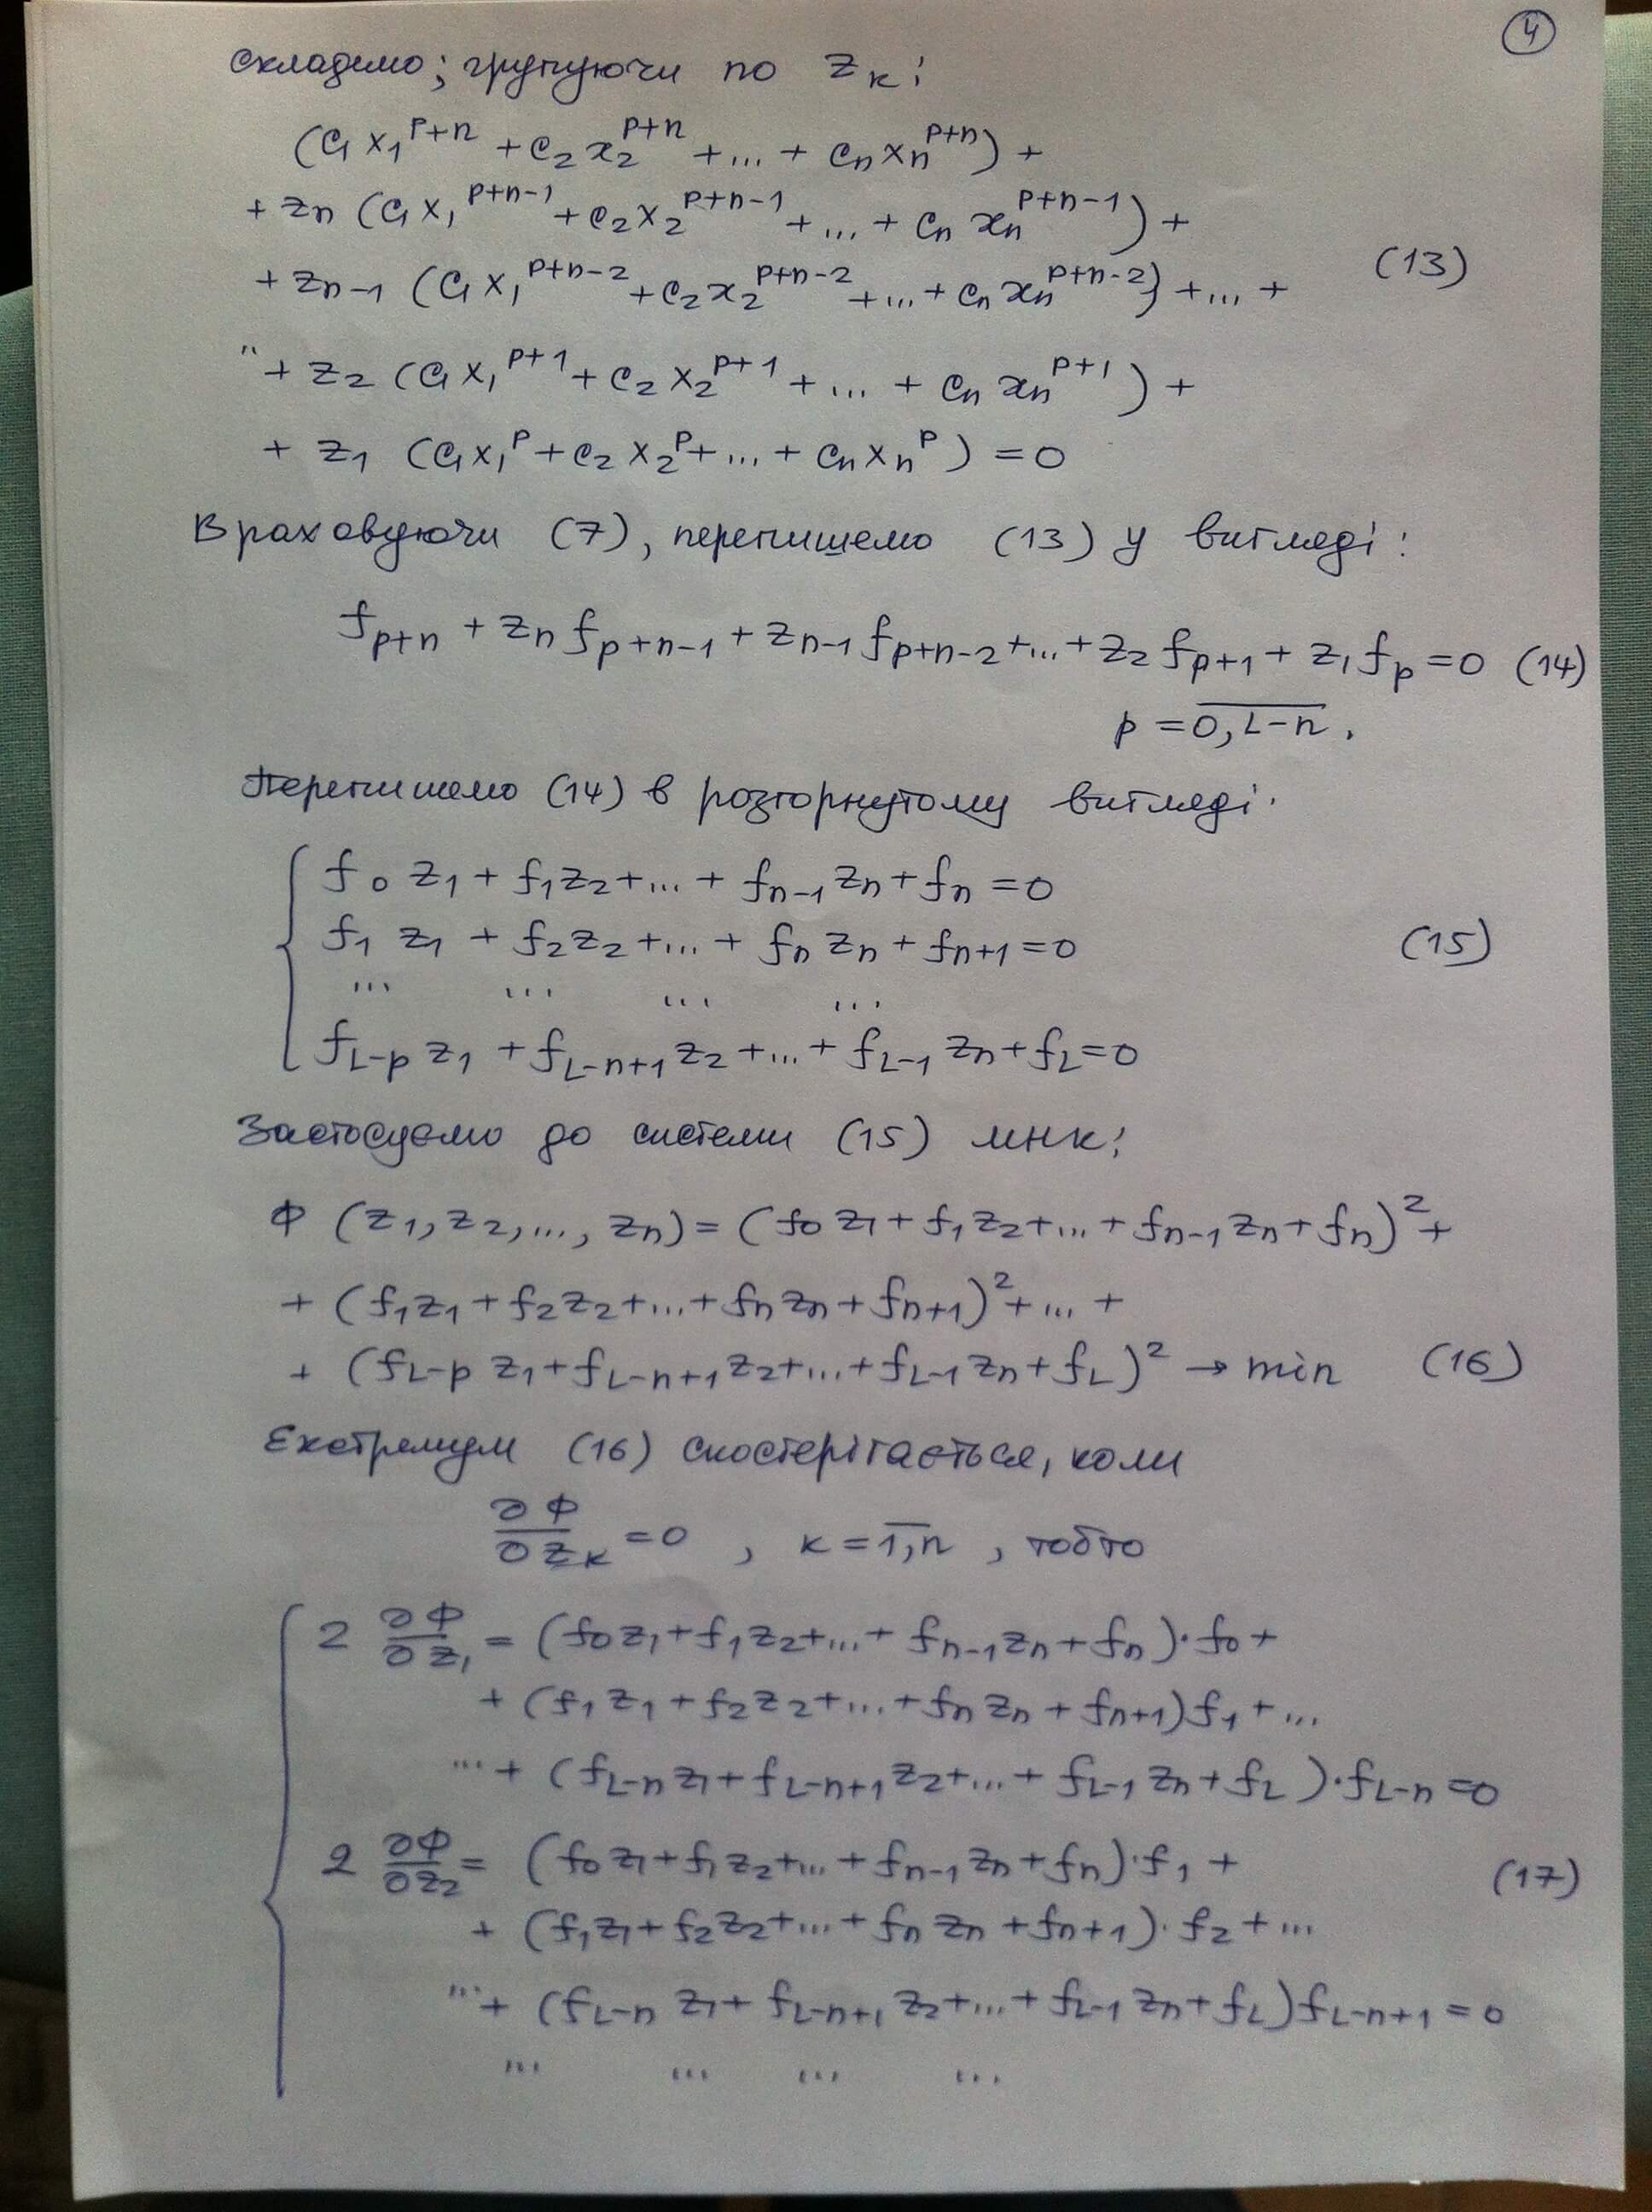 4
складемо; групуючи по z_k:
(c₁x₁^{p+n} + c₂x₂^{p+n} + ... + cₙxₙ^{p+n}) +
+ zₙ (c₁x₁^{p+n-1} + c₂x₂^{p+n-1} + ... + cₙxₙ^{p+n-1}) +
+ z_{n-1} (c₁x₁^{p+n-2} + c₂x₂^{p+n-2} + ... + cₙxₙ^{p+n-2}) + ... + (13)
" + z₂ (c₁x₁^{p+1} + c₂x₂^{p+1} + ... + cₙxₙ^{p+1}) +
+ z₁ (c₁x₁^p + c₂x₂^p + ... + cₙxₙ^p) = 0
Враховуючи (7), перепишемо (13) у вигляді:
f_{p+n} + zₙ f_{p+n-1} + z_{n-1} f_{p+n-2} + ... + z₂ f_{p+1} + z₁ f_p = 0 (14)
p = \overline{0, L-n}.
Перепишемо (14) в розгорнутому вигляді.
f₀ z₁ + f₁ z₂ + ... + f_{n-1} zₙ + fₙ = 0
f₁ z₁ + f₂ z₂ + ... + fₙ zₙ + f_{n+1} = 0 (15)
... ... ... ...
f_{L-p} z₁ + f_{L-n+1} z₂ + ... + f_{L-1} zₙ + f_L = 0
Застосуємо до системи (15) МНК:
Φ (z₁, z₂, ..., zₙ) = (f₀ z₁ + f₁ z₂ + ... + f_{n-1} zₙ + fₙ)² +
+ (f₁ z₁ + f₂ z₂ + ... + fₙ zₙ + f_{n+1})² + ... +
+ (f_{L-p} z₁ + f_{L-n+1} z₂ + ... + f_{L-1} zₙ + f_L)² → min (16)
Екстремум (16) спостерігається, коли
∂Φ/∂z_k = 0 , k = \overline{1,n} , тобто
2 ∂Φ/∂z₁ = (f₀ z₁ + f₁ z₂ + ... + f_{n-1} zₙ + fₙ)·f₀ +
+ (f₁ z₁ + f₂ z₂ + ... + fₙ zₙ + f_{n+1}) f₁ + ...
... + (f_{L-n} z₁ + f_{L-n+1} z₂ + ... + f_{L-1} zₙ + f_L)·f_{L-n} = 0
2 ∂Φ/∂z₂ = (f₀ z₁ + f₁ z₂ + ... + f_{n-1} zₙ + fₙ)·f₁ + (17)
+ (f₁ z₁ + f₂ z₂ + ... + fₙ zₙ + f_{n+1})·f₂ + ...
... + (f_{L-n} z₁ + f_{L-n+1} z₂ + ... + f_{L-1} zₙ + f_L) f_{L-n+1} = 0
... ... ... ...